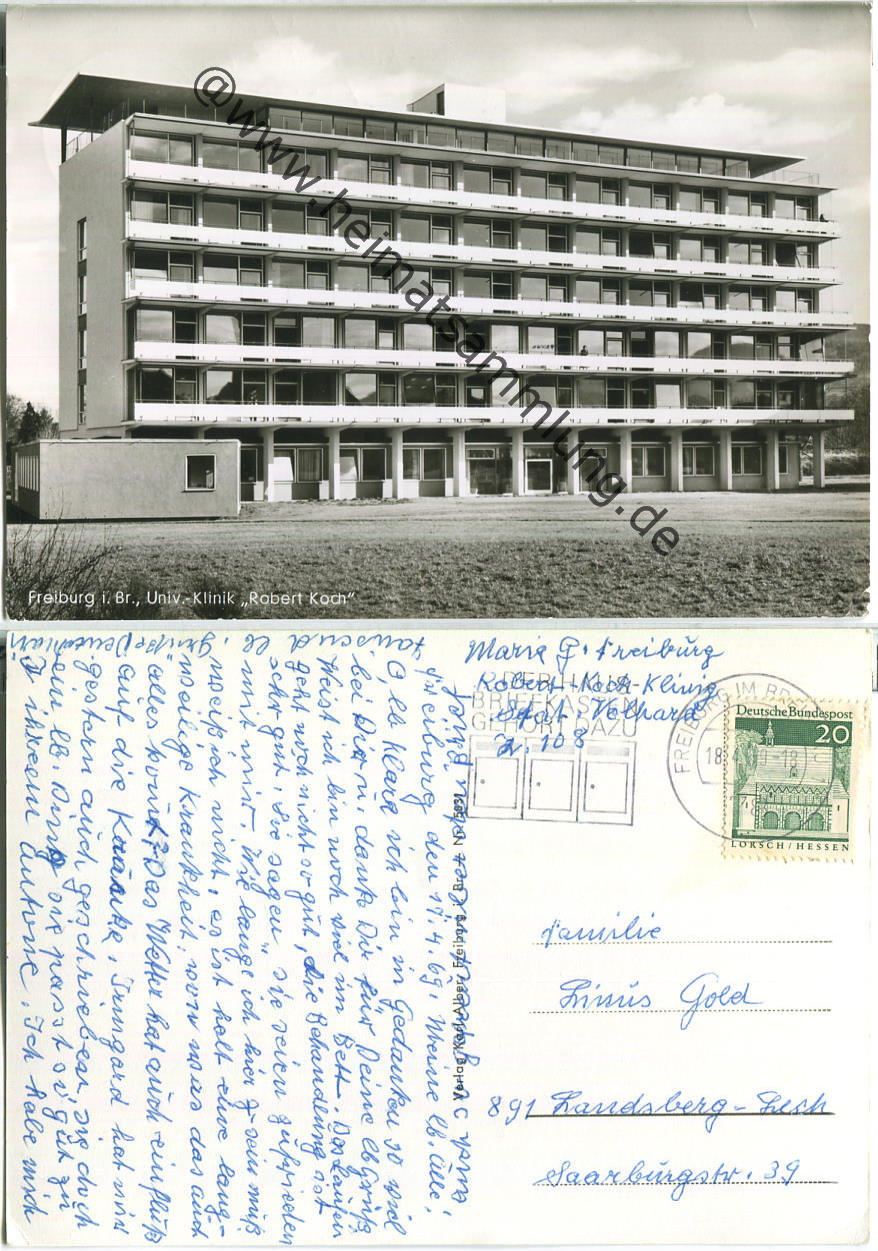 @www.heimatsammlung.de
Freiburg i. Br., Univ.-Klinik „Robert Koch"
Maria G. Freiburg
Robert-Koch-Klinik
Stat. Volhard
Z. 108
DER HAUS-
BRIEFKASTEN
GEHÖRT DAZU
FREIBURG IM BR
18
-18
Deutsche Bundespost
20
LORSCH/HESSEN
Familie
Linus Gold
891 Landsberg-Lech
Saarburgstr. 39
Verlag Karl Alber, Freiburg i. Br. Nr. 5831
Freiburg den 17.4.69. Meine lb. alle,
O, lb. Klara ich bin in Gedanken so viel
bei Dir u. danke Dir für Deine lb. Grüße
Weist ich bin noch viel im Bett. Das Laufen
geht noch nicht so gut, die Behandlung ist
sehr gut, sie sagen, sie seien zufrieden
mit mir. Wie lange ich hier sein muß
weiß ich nicht, es ist halt eine lang-
weilige Krankheit, wovon das auch
alles kommt? Das Wetter hat auch einfluß
auf die Kranke, Irmgard hat mir
gestern auch geschrieben, sie doch
ein lb. Ding sie passt so gut zu
ihrem Antone. Ich habe mich
tausend lb. Grüße